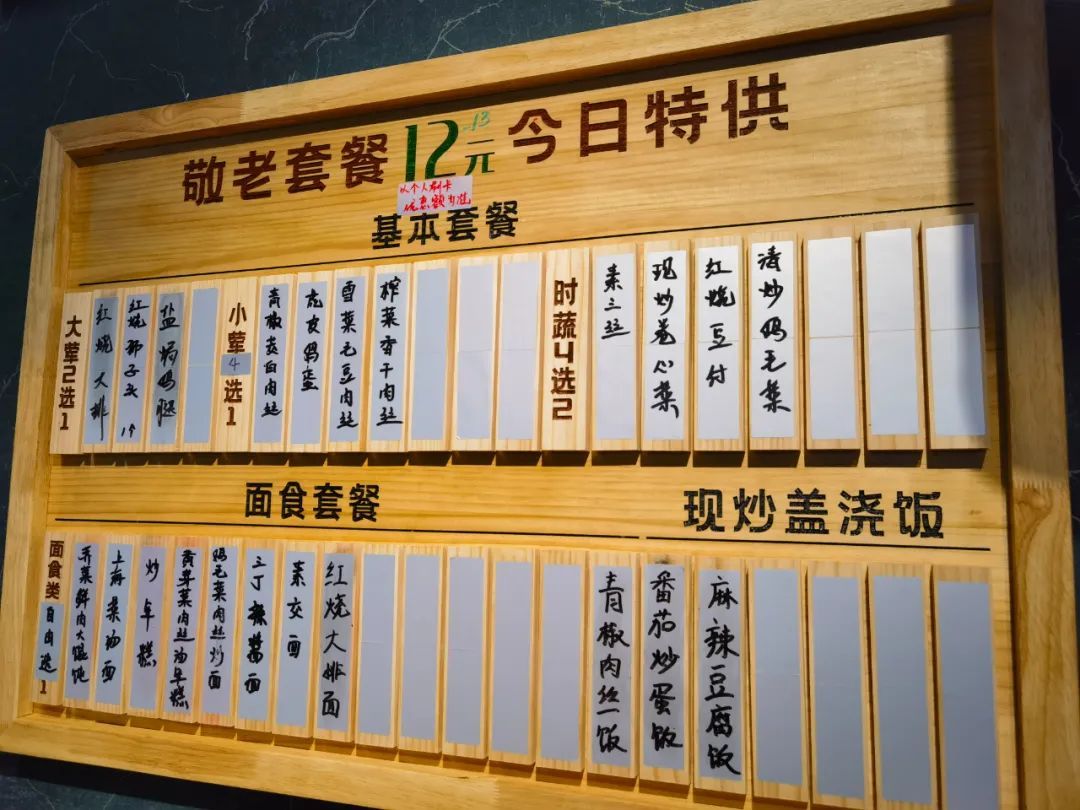 敬老套餐12-13元今日特供
以个人刷卡
优惠额为准
基本套餐
大荤2选1
红烧大排
红烧狮子头 1个
盐焗鸡腿
小荤4选1
青椒茭白肉丝
虎皮鸡蛋
雪菜毛豆肉丝
榨菜香干肉丝
时蔬4选2
素三丝
现炒卷心菜
红烧豆付
清炒鸡毛菜
面食套餐
现炒盖浇饭
面食类自由选1
荠菜鲜肉大馄饨
上海面
炒年糕
黄芽菜肉丝汤年糕
鸡毛菜肉丝炒面
三丁辣酱面
素交面
红烧大排面
青椒肉丝饭
番茄炒蛋饭
麻辣豆腐饭